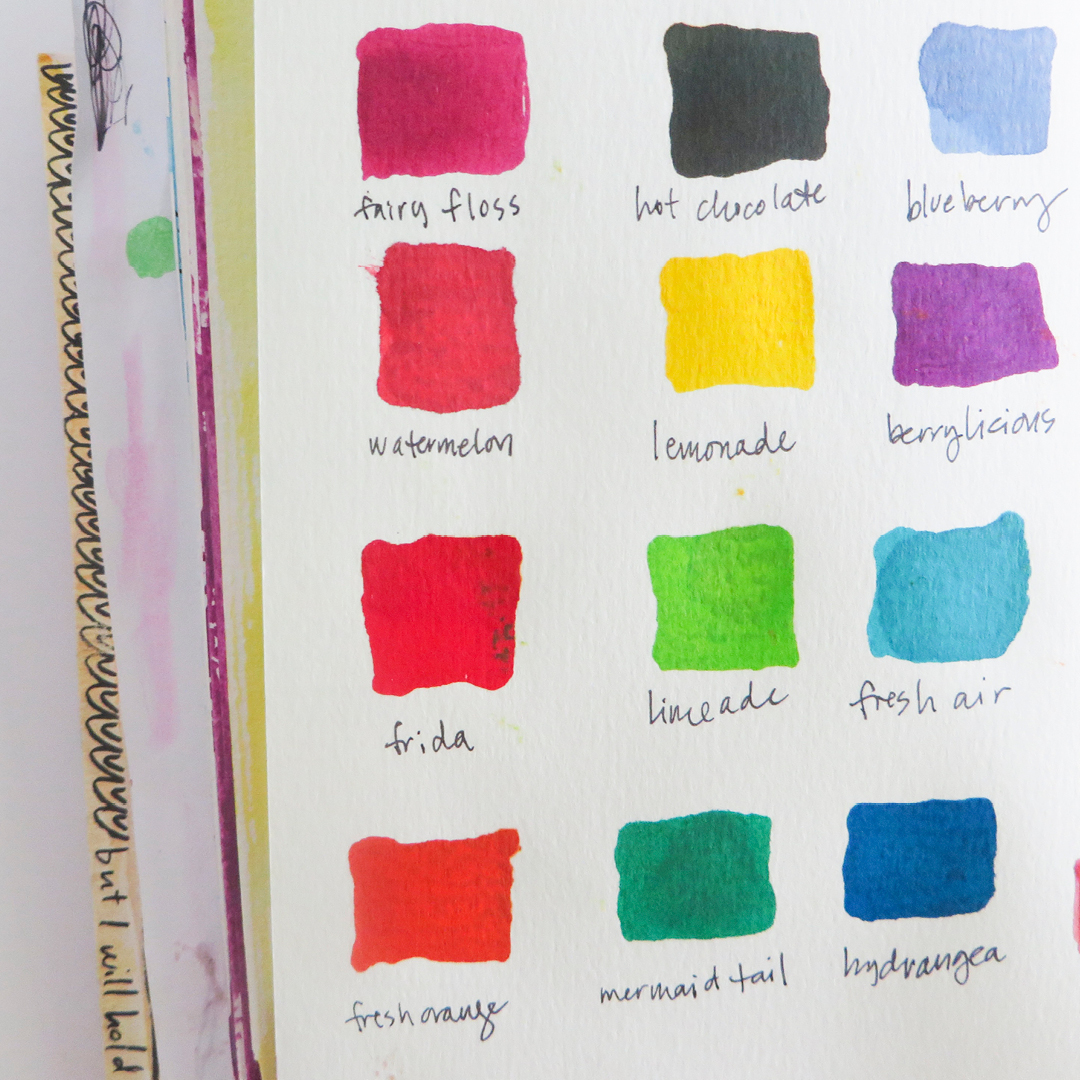 fairy floss
hot chocolate
blueberry
watermelon
lemonade
berrylicious
frida
limeade
fresh air
fresh orange
mermaid tail
hydrangea
but I will hold